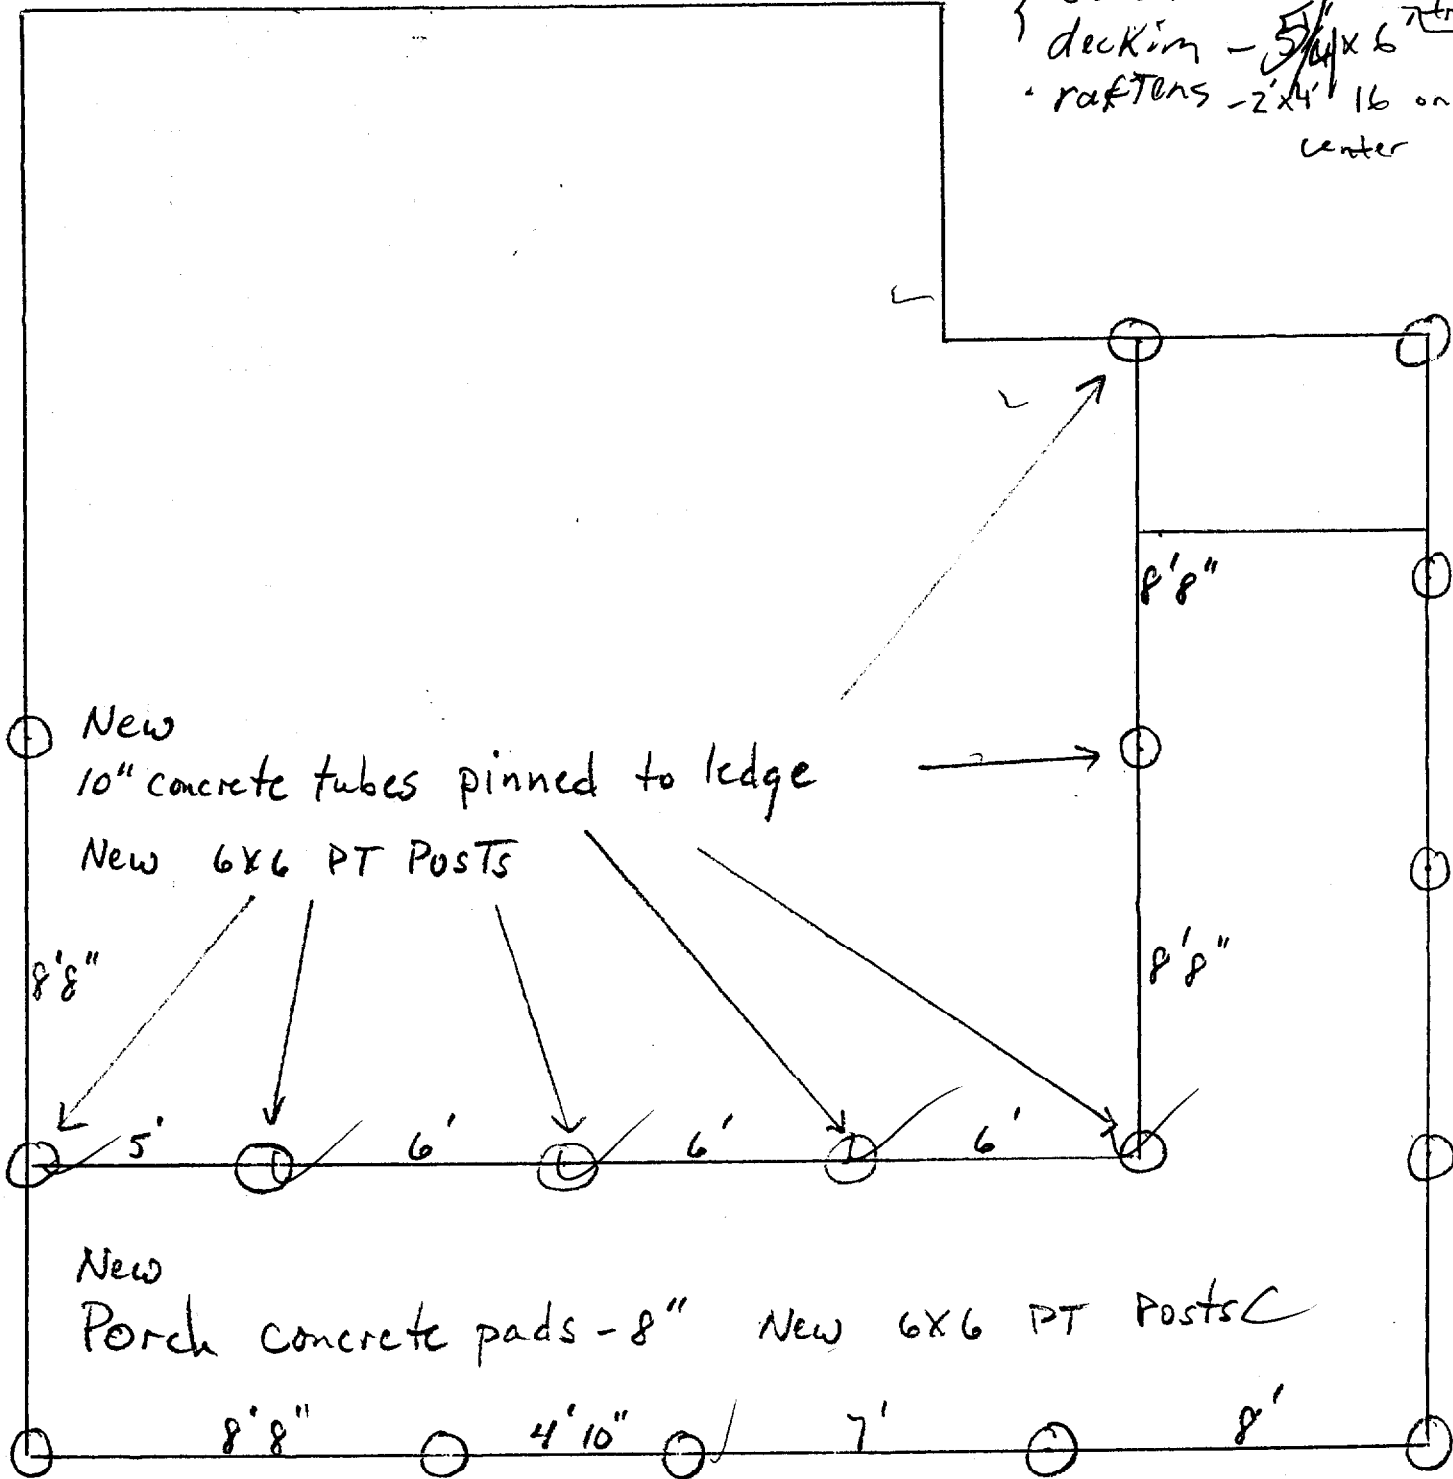 deckim - 5/4 x 6
· rafTens - 2'x4' 16 on
center
8'8"
New
10" concrete tubes pinned to ledge
New 6x6 PT PosTs
8'8"
8'8"
5' 6' 6' 6'
New
Porch concrete pads - 8" New 6x6 PT Posts
8'8" 4'10" 7' 8'